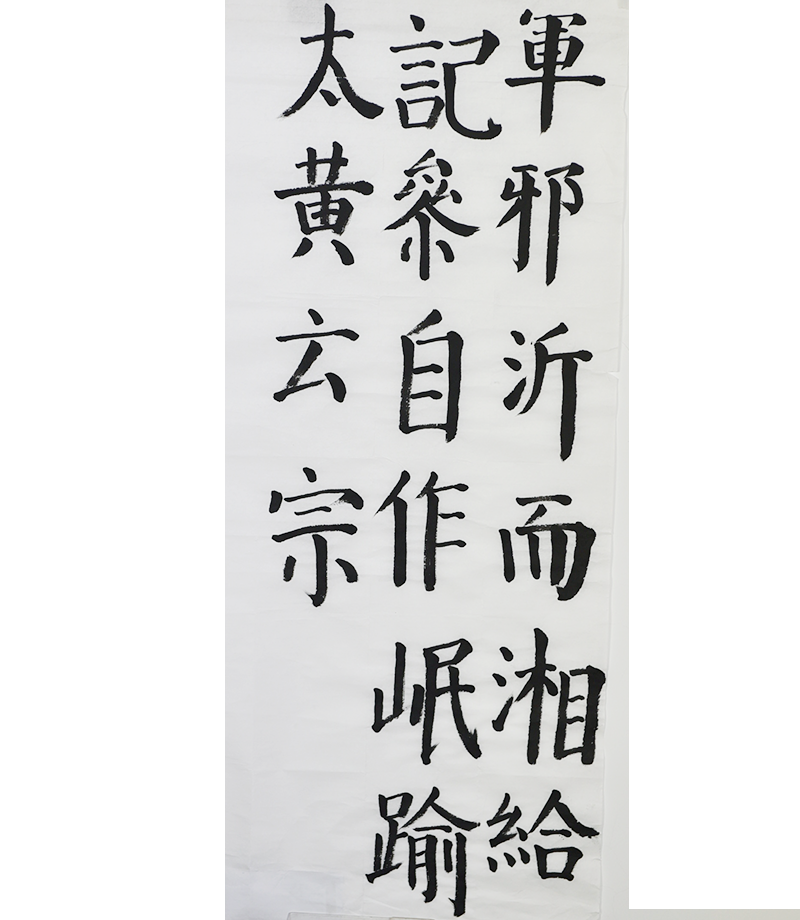 軍邪沂而湘給
記叅自作岷踰
太黄玄宗